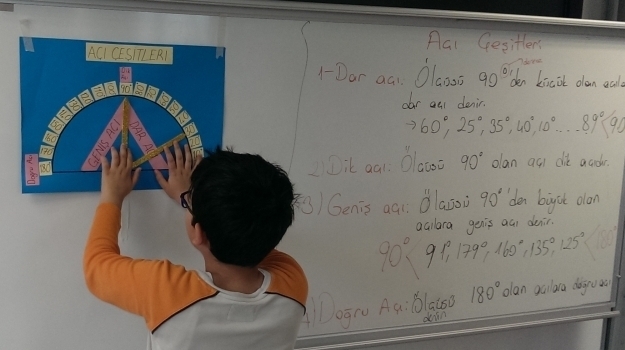 AÇI ÇEŞİTLERİ
90°
GENİŞ AÇI
DAR AÇ
Doğru Açı
170
180
Açı Çeşitleri
1-Dar açı: Ölçüsü 90°'den küçük olan açıla
dar açı denir.
→ 60°, 25°, 35°, 40°, 10° ... 89° < 90
2) Dik açı: Ölçüsü 90° olan açı dik açıdır.
3) Geniş açı: Ölçüsü 90°'den büyük olan
açılara geniş açı denir.
90° < 91°, 179°, 160°, 135°, 125° < 180°
) Doğru Açı: Ölçüsü 180° olan açılara doğru açı
denir